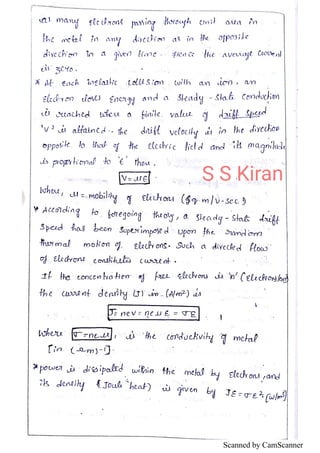 as many electrons passing through unit area in
the metal in any direction as in the opposite
direction in a given time. Hence the average current
is zero.
* At each inelastic collision with an ion, an
Electron loses Energy and a Steady-State Condition
is reached when a finite value of drift Speed
'v' is attained. the drift velocity is in the direction
opposite to that of the Electric field and its magnitude
is proportional to 'ε' thus.
V = μE
S S Kiran
where, μ = mobility of Electrons (sq. m/v-sec)
* According to foregoing theory, a Steady-State drift
Speed has been Superimposed upon the random
thermal motion of Electrons. Such a directed flow
of Electrons constitutes current.
If the concentration of free Electrons is 'n' (Electrons/m3)
the current density (J) in (A/m²) is
J = nev = neμE = σE
where σ = neμ, is the conductivity of metal
[in (Ω-m)-1].
* power is dissipated within the metal by Electrons, and
its density (Joule heat) is given by JE = σE² [W/m³]
Scanned by CamScanner